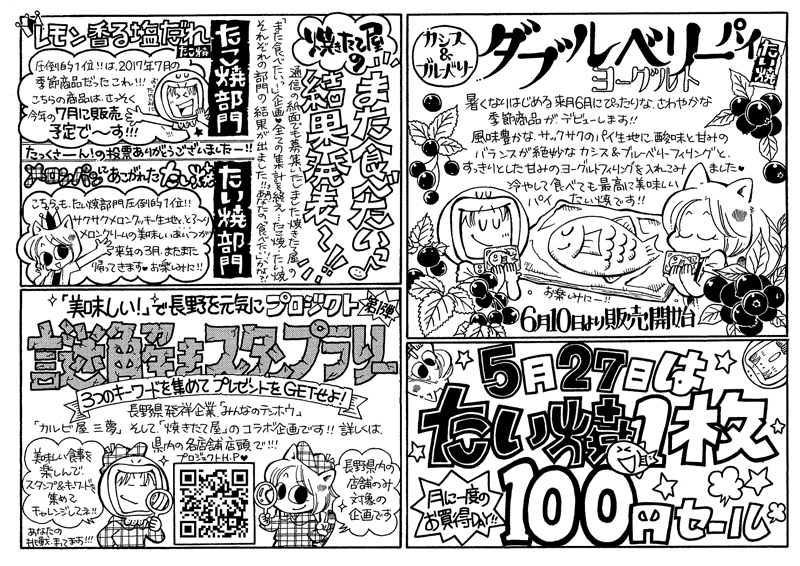 カシス
&
ブルーベリー
ダブルベリーパイ
ヨーグルト
たい焼
暑くなりはじめる来月6月にぴったりな、さわやかな
季節商品がデビューします!!
風味豊かな、サックサクのパイ生地に、酸味と甘みの
バランスが絶妙なカシス&ブルーベリーフィリングと、
すっきりとした甘みのヨーグルトフィリングを入れこみました♥
冷やして食べても最高に美味しい
パイたい焼です!!
お楽しみにー!!
6月10日より販売開始
焼きたて屋
の
また食べたいっ
結果発表〜!!
「また食べたいっ」企画♥全ての集計を終え…たこ焼、たい焼
それぞれの部門の結果が出ました!!あなたの「食べたい」がかな?!
レモン香る塩だれ
たこ焼
たこ焼部門
圧倒的1位!!は、2017年7月の
季節商品だったこれ!!!
こちらの商品は、さっそく
今年の7月に販売
予定で〜す!!!
たっくさーん!の投票ありがとうございましたー!!
メロンパンにあこがれたたい焼
たい焼部門
こちらも、たい焼部門圧倒的1位!!
サクサクメロンクッキー生地と、とろ〜り
メロンクリームの美味しいあいつが♪
来年の3月、またまた
帰ってきます♥お楽しみに!!
「美味しい!」で長野を元気にプロジェクト第1弾
謎解きスタンプラリー
3つのキーワードを集めてプレゼントをGETせよ!
長野県発祥企業、「みんなのテンホウ」
「カルビ屋 三夢」そして、「焼きたて屋」のコラボ企画です!!詳しくは、
県内の各店舗店頭で!!!
プロジェクトH.P♥
美味しい食事を
楽しんで
スタンプ&キーワードを
集めて
チャレンジしてネ!!
あなたの
挑戦、まってます!!!
長野県内の
店舗のみ
対象の
企画です
5月27日は
たい焼1枚
100円セール
月に一度の
お買得DAY!!